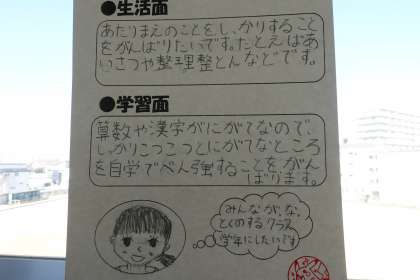 ●生活面
あたりまえのことをし、かりすること
をがんばりたいです。たとえばあ
いさつや整理整とんなどです。
●学習面
算数や漢字がにがてなので、
しっかりこつこつとにがてなところ
を自学でべん強することをがん
ばります。
みんなが、な、
とくのするクラス
学年にしたいです